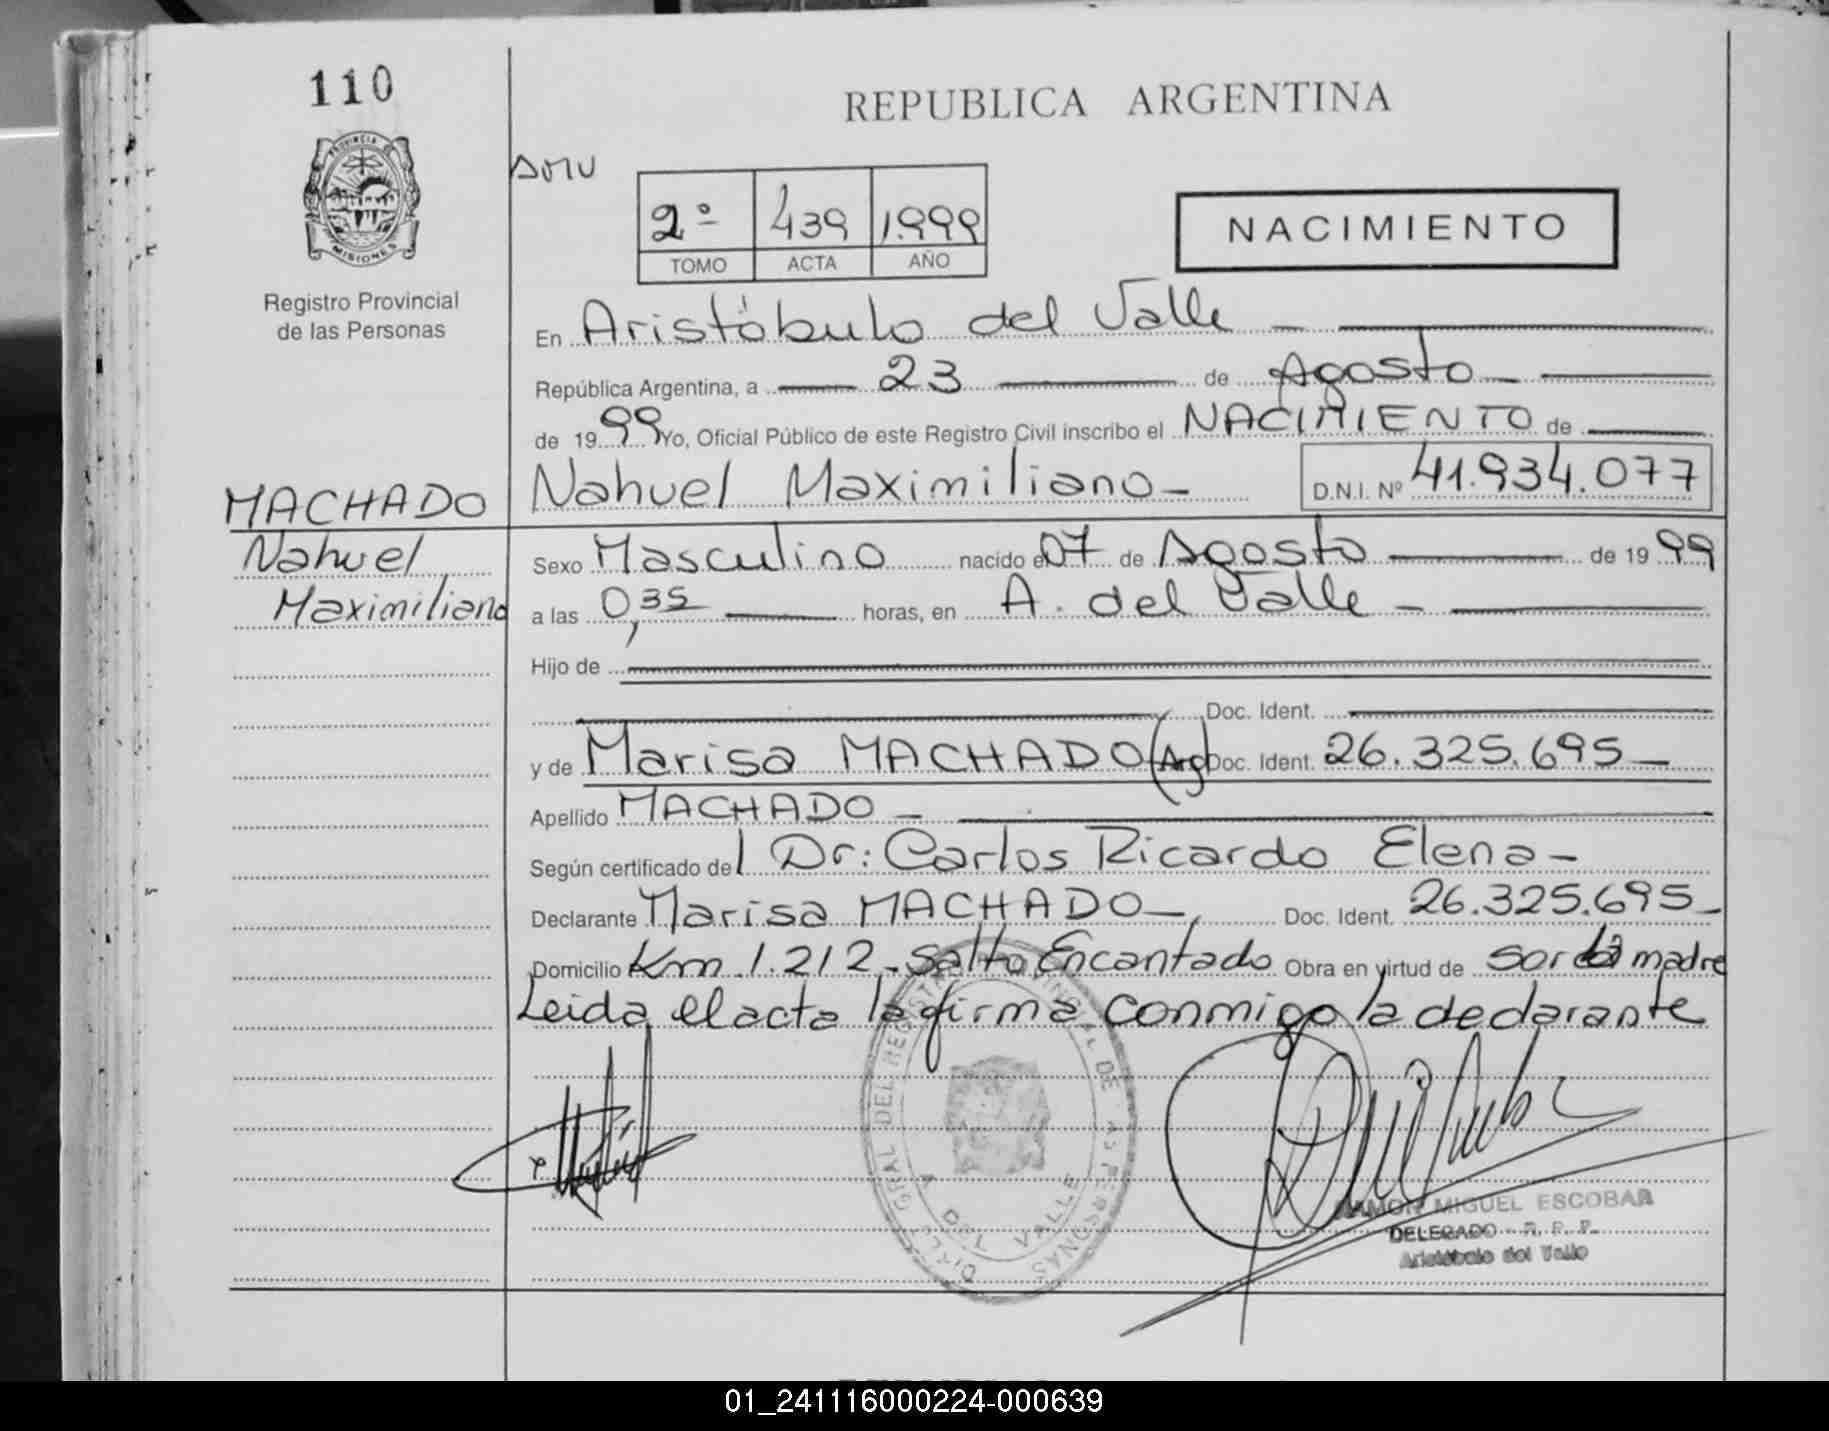 110
REPUBLICA ARGENTINA
PROVINCIA DE
MISIONES
Registro Provincial
de las Personas
2º 439 1999
TOMO ACTA AÑO
NACIMIENTO
En Aristóbulo del Valle
República Argentina, a 23 de Agosto
de 1999 Yo, Oficial Público de este Registro Civil inscribo el NACIMIENTO de
MACHADO
Nahuel
Maximiliano
Nahuel Maximiliano D.N.I. Nº 41.934.077
Sexo Masculino nacido el 07 de Agosto de 1999
a las 0,35 horas, en A. del Valle
Hijo de
Doc. Ident.
y de Marisa MACHADO (Arg) Doc. Ident. 26.325.695
Apellido MACHADO
Según certificado del Dr: Carlos Ricardo Elena
Declarante Marisa MACHADO Doc. Ident. 26.325.695
Domicilio Km 1.212 - Salto Encantado Obra en virtud de ser la madre
Leida el acta la firma conmigo la declarante
A. DEL VALLE
RAMON MIGUEL ESCOBAR
DELEGADO - R. P. P.
Aristóbulo del Valle
01_241116000224-000639